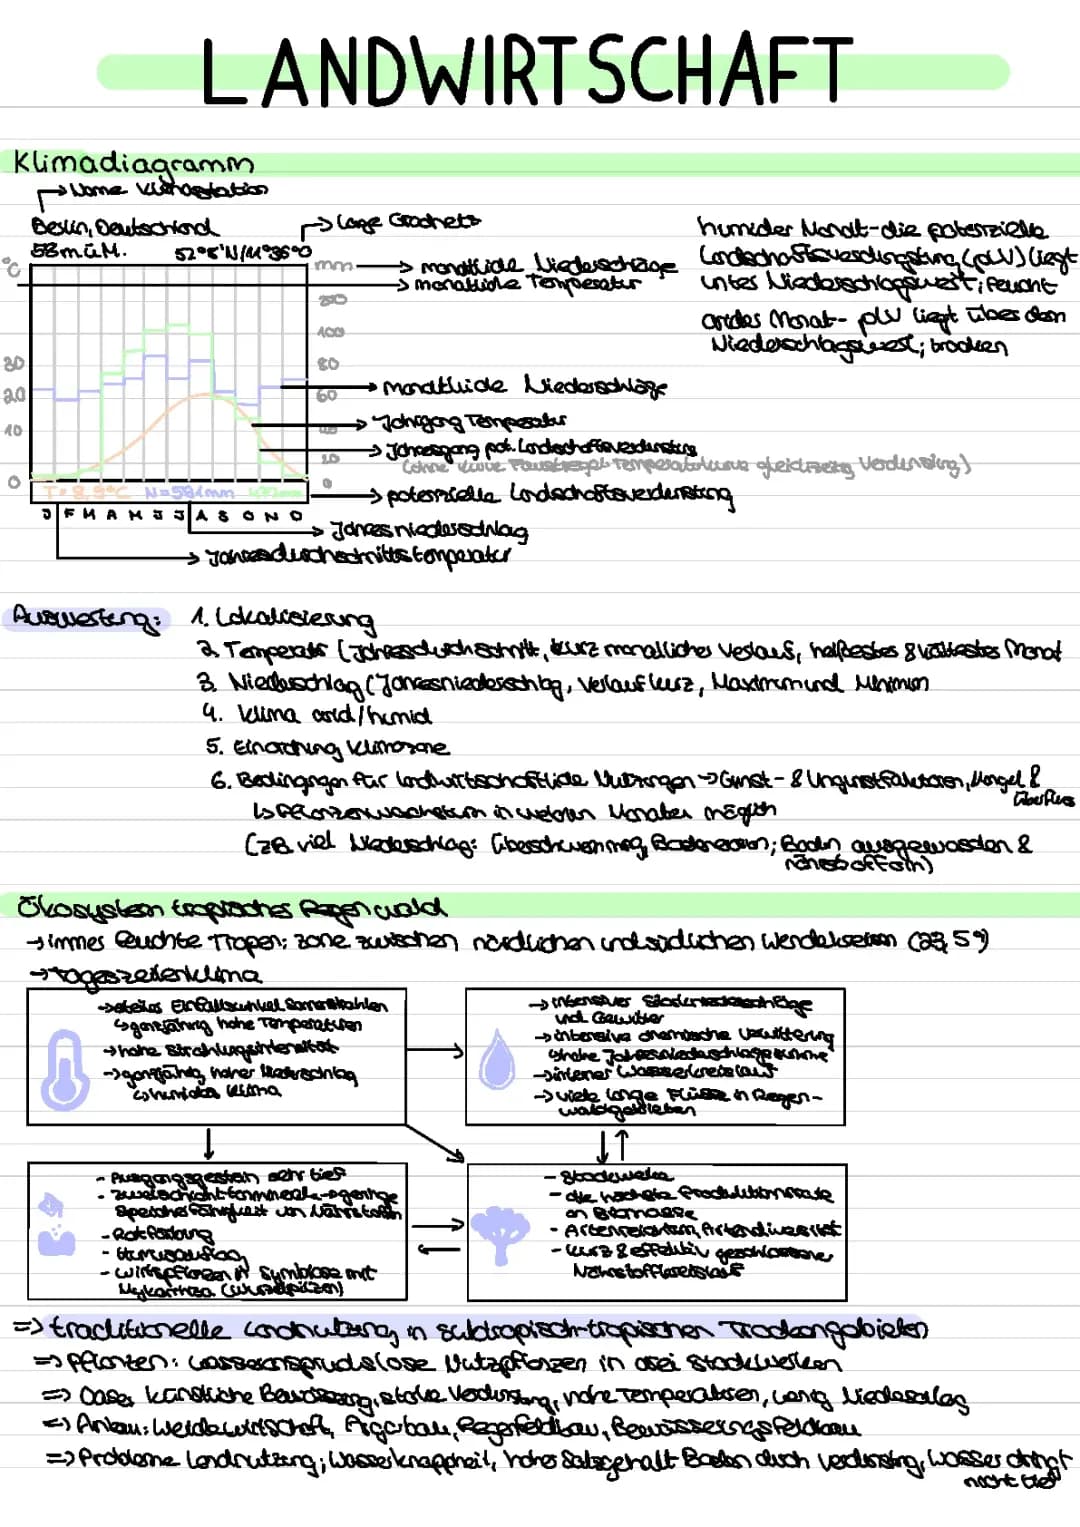 LANDWIRTSCHAFT
Klimadiagramm
→ Name Klimastation
Berlin, Deutschland
→ Lage Gradnetz
58 m.ü.M. 52°8'N/11°36°O
°C mm → monatliche Niederschläge
→ monatliche Temperatur
200
100
30 80
20 60
→ monatliche Niederschläge
10
→ Jahrgang Temperatur
→ Jahresgang pot. Landschaftsverdunstung
20
(ohne Kurve Faustregel Temperaturkurve gleichzeitig Verdunstung)
0 0
T = 8,9°C N=581mm
→ potenzielle Landschaftsverdunstung
J F M A M J J A S O N D
→ Jahresniederschlag
→ Jahresdurchschnittstemperatur
humider Monat - die potenzielle
Landschaftsverdunstung (pLV) liegt
unter Niederschlagswert; feucht
arider Monat - pLV liegt über dem
Niederschlagswert; trocken
Auswertung: 1. Lokalisierung
2. Temperatur (Jahresdurchschnitt, kurz monatlicher Verlauf, heißestes & kältestes Monat
3. Niederschlag (Jahresniederschlag, Verlauf kurz, Maximum und Minimum
4. Klima arid/humid
5. Einordnung Klimazone
6. Bedingungen für landwirtschaftliche Nutzungen → Gunst- & Ungunstfaktoren, Mangel &
Überfluss
↳ Pflanzenwachstum in welchen Monaten möglich
(zB viel Niederschlag: Überschwemmung, Bodenerosion; Boden ausgewaschen &
nährstoffarm)
Ökosystem tropischer Regenwald
→ immer feuchte Tropen: Zone zwischen nördlichen und südlichen Wendekreisen (23,5°)
→ Tageszeitenklima
→ steiler Einfallswinkel Sonnenstrahlen
↳ ganzjährig hohe Temperaturen
→ hohe Strahlungsintensität
→ ganzjährig hoher Niederschlag
↳ humides Klima
→ intensiver Starkniederschläge
und Gewitter
→ intensive chemische Verwitterung
↳ hohe Jahresniederschlagssumme
→ interner Wasserkreislauf
→ viele lange Flüsse in Regen-
waldgebieten
- Ausgangsgestein sehr tief
- Zweischichttonmineral → geringe
Speicherfähigkeit von Nährstoffen
- Rotfärbung
- Humusauflag
- Wirtspflanzen in Symbiose mit
Mykorrhiza (Wurzelpilzen)
- Stockwerke
- die höchste Produktionsrate
an Biomasse
- Artenreichtum, Artendiversität
- kurz & effektiv geschlossene
Nährstoffkreislauf
⇒ traditionelle Landnutzung in subtropisch-tropischen Trockengebieten
⇒ Pflanzen: wasseranspruchslose Nutzpflanzen in drei Stockwerken
⇒ Oase: künstliche Bewässerung, starke Verdunstung, hohe Temperaturen, wenig Niederschlag
⇒ Anbau: Weidewirtschaft, Regenfeldbau, Bewässerungsfeldbau
⇒ Probleme Landnutzung; Wasserknappheit, hoher Salzgehalt Boden durch Verdunstung, Wasser dringt
nicht tief